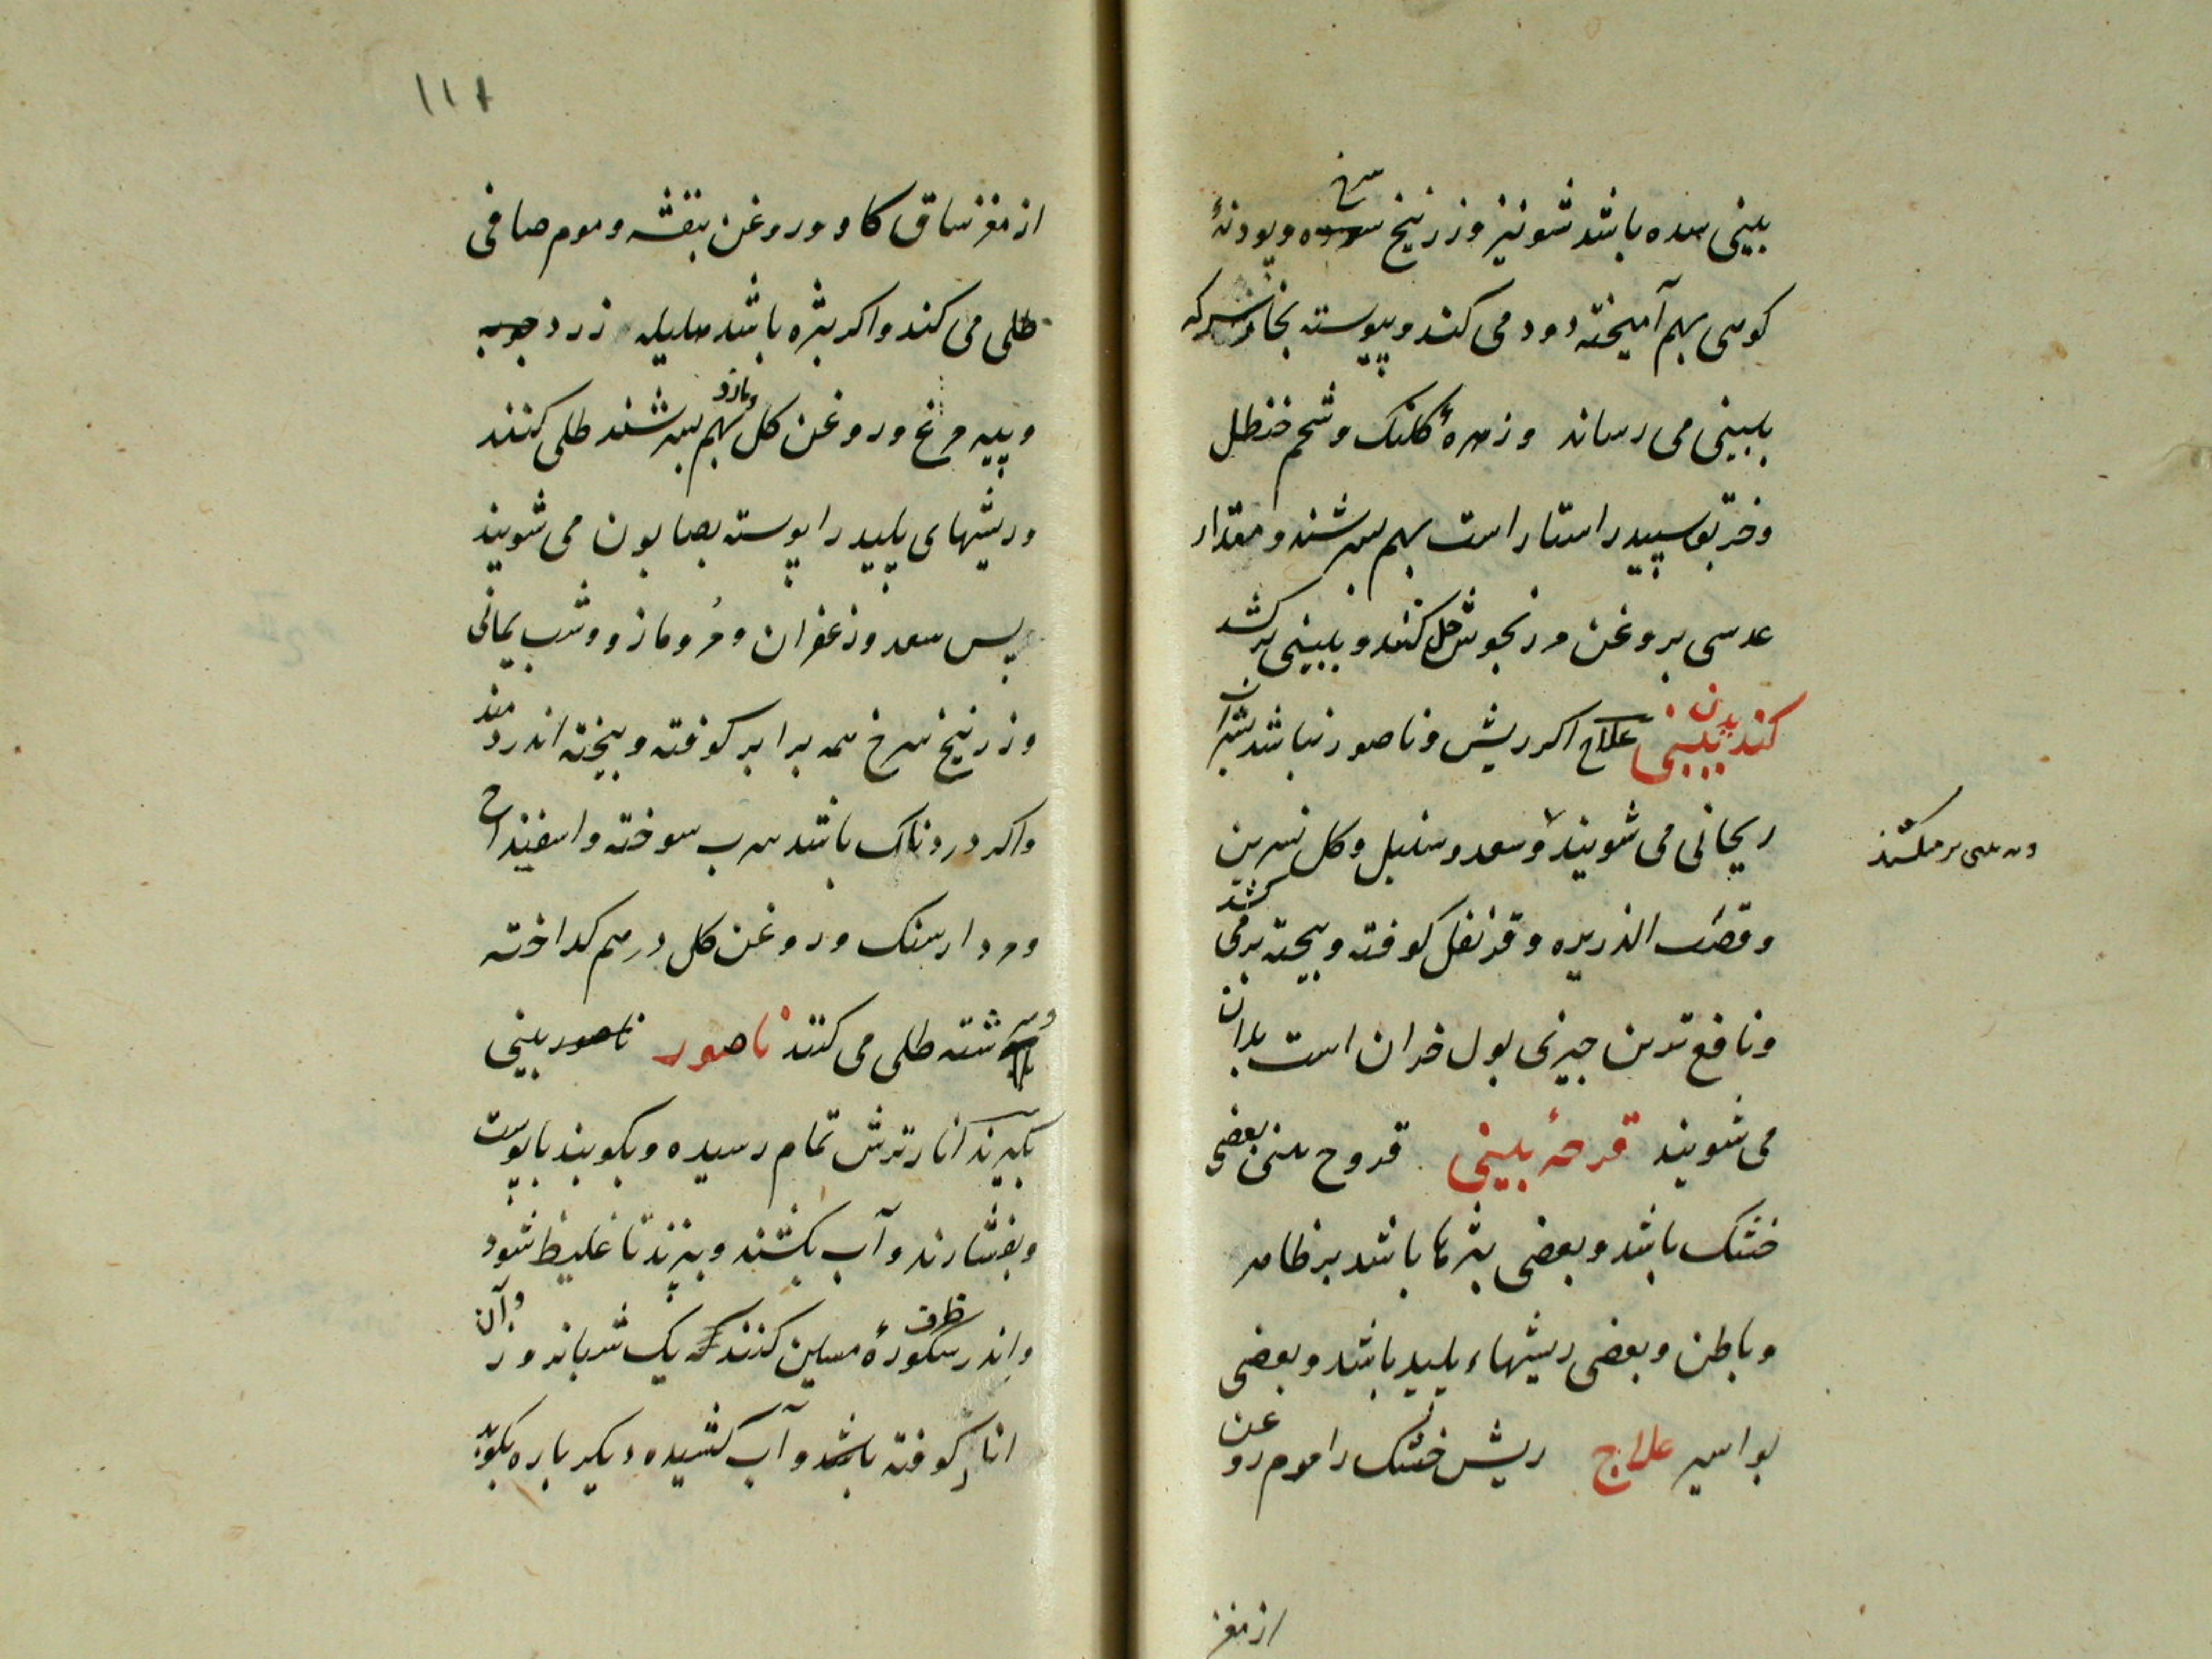 بینی سده باشد شونیز و زرنیخ سرخ و پودنهٔ
کوهی بهم آمیخته دود می کند و پیوسته بخار سرکه
ببینی می رساند و زهرهٔ کلنک و شحم حنظل
و خربق سپید راستاراست بهم بسرشند و مقدار
عدسی بروغن مرزنجوش حل کنند و ببینی برکشد
کندیدن بینی علاج اکر ریش و ناصور نباشد بشراب
ریحانی می شویند و سعد و سنبل و کل نسرین
و قصب الذریره و قرنفل کوفته و بیخته برمی کشد
و نافع ترین چیزی بول خران است بدان
می شویند قرحهٔ بینی قروح بینی بعضی
خشک باشد و بعضی بثرها باشد بر ظاهر
و باطن و بعضی ریشهاء پلید باشد و بعضی
بواسیر علاج ریش خشک را موم روغن
از مغز
۱۱۱
از مغز ساق کاو و روغن بنفشه و موم صافی
طلی می کند و اکر بثره باشد هلیله زرد چوبه
و پیه مرغ و روغن کل و مازو بهم بسرشند طلی کنند
و ریشهای پلید را پیوسته بصابون می شویند
پس سعد و زعفران و مُر و مازو و شب یمانی
و زرنیخ سرخ همه برابر کوفته و بیخته اندر دمند
و اکر دردناک باشد سرب سوخته و اسفیداج
و مردارسنک و روغن کل درهم کداخته
و سرشته طلی می کنند ناصور ناصور بینی
بکیرند انار ترش تمام رسیده و بکوبند با پوست
و بفشارند و آب بکشند و بپزند تا غلیظ شود
و اندر ظرف مسین کنند یک شبانروز و آن
انار کوفته باشد و آب کشیده دیکر باره بکوبند